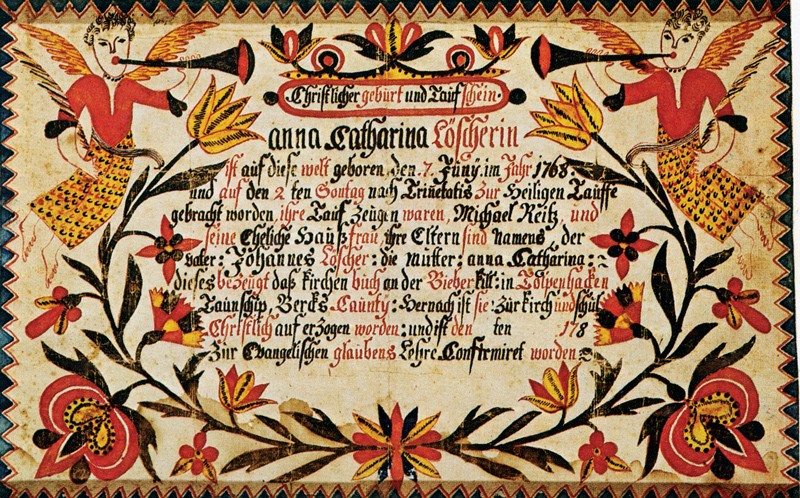 Christlicher geburt und Tauf schein.
anna Catharina Löscherin
ist auf diese welt geboren, den 7. Juny im Jahr 1768
und auf den 2 ten Sontag nach Trinetatis zur Heiligen Tauffe
gebracht worden, ihre Tauf Zeugen waren, Michael Reitz und
seine Eheliche Haußfrau, ihre Eltern sind Namens der
vater: Johannes Löscher: die mutter: anna Catharina:
dieses bezeugt daß kirchen buch an der Bieber kill: in Tolpenhacken
Taunschip, Bercks Caunty: Hernach ist sie: zür kirch und schul
Christlich auf erzogen worden: und ist den ten 178
Zür Evangelischen glaubens Lehre Confirmiret worden